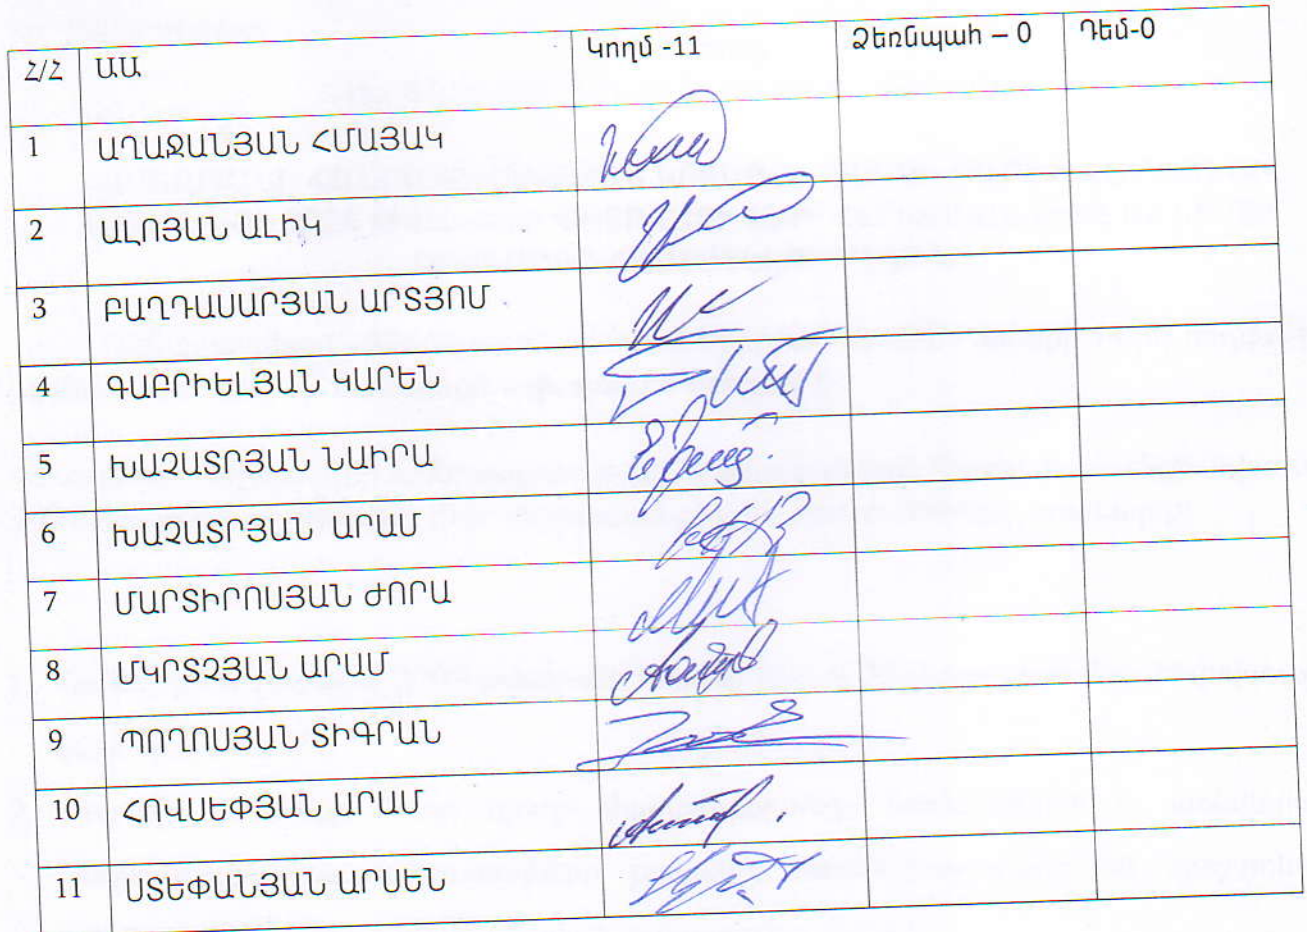 Հ/Հ ԱԱ Կողմ -11 Ձեռնպահ – 0 Դեմ-0
1 ԱՂԱՋԱՆՅԱՆ ՀՄԱՅԱԿ
2 ԱԼՈՅԱՆ ԱԼԻԿ
3 ԲԱՂԴԱՍԱՐՅԱՆ ԱՐՏՅՈՄ
4 ԳԱԲՐԻԵԼՅԱՆ ԿԱՐԵՆ
5 ԽԱՉԱՏՐՅԱՆ ՆԱԻՐԱ
6 ԽԱՉԱՏՐՅԱՆ ԱՐԱՄ
7 ՄԱՐՏԻՐՈՍՅԱՆ ԺՈՐԱ
8 ՄԿՐՏՉՅԱՆ ԱՐԱՄ
9 ՊՈՂՈՍՅԱՆ ՏԻԳՐԱՆ
10 ՀՈՎՍԵՓՅԱՆ ԱՐԱՄ
11 ՍՏԵՓԱՆՅԱՆ ԱՐՍԵՆ